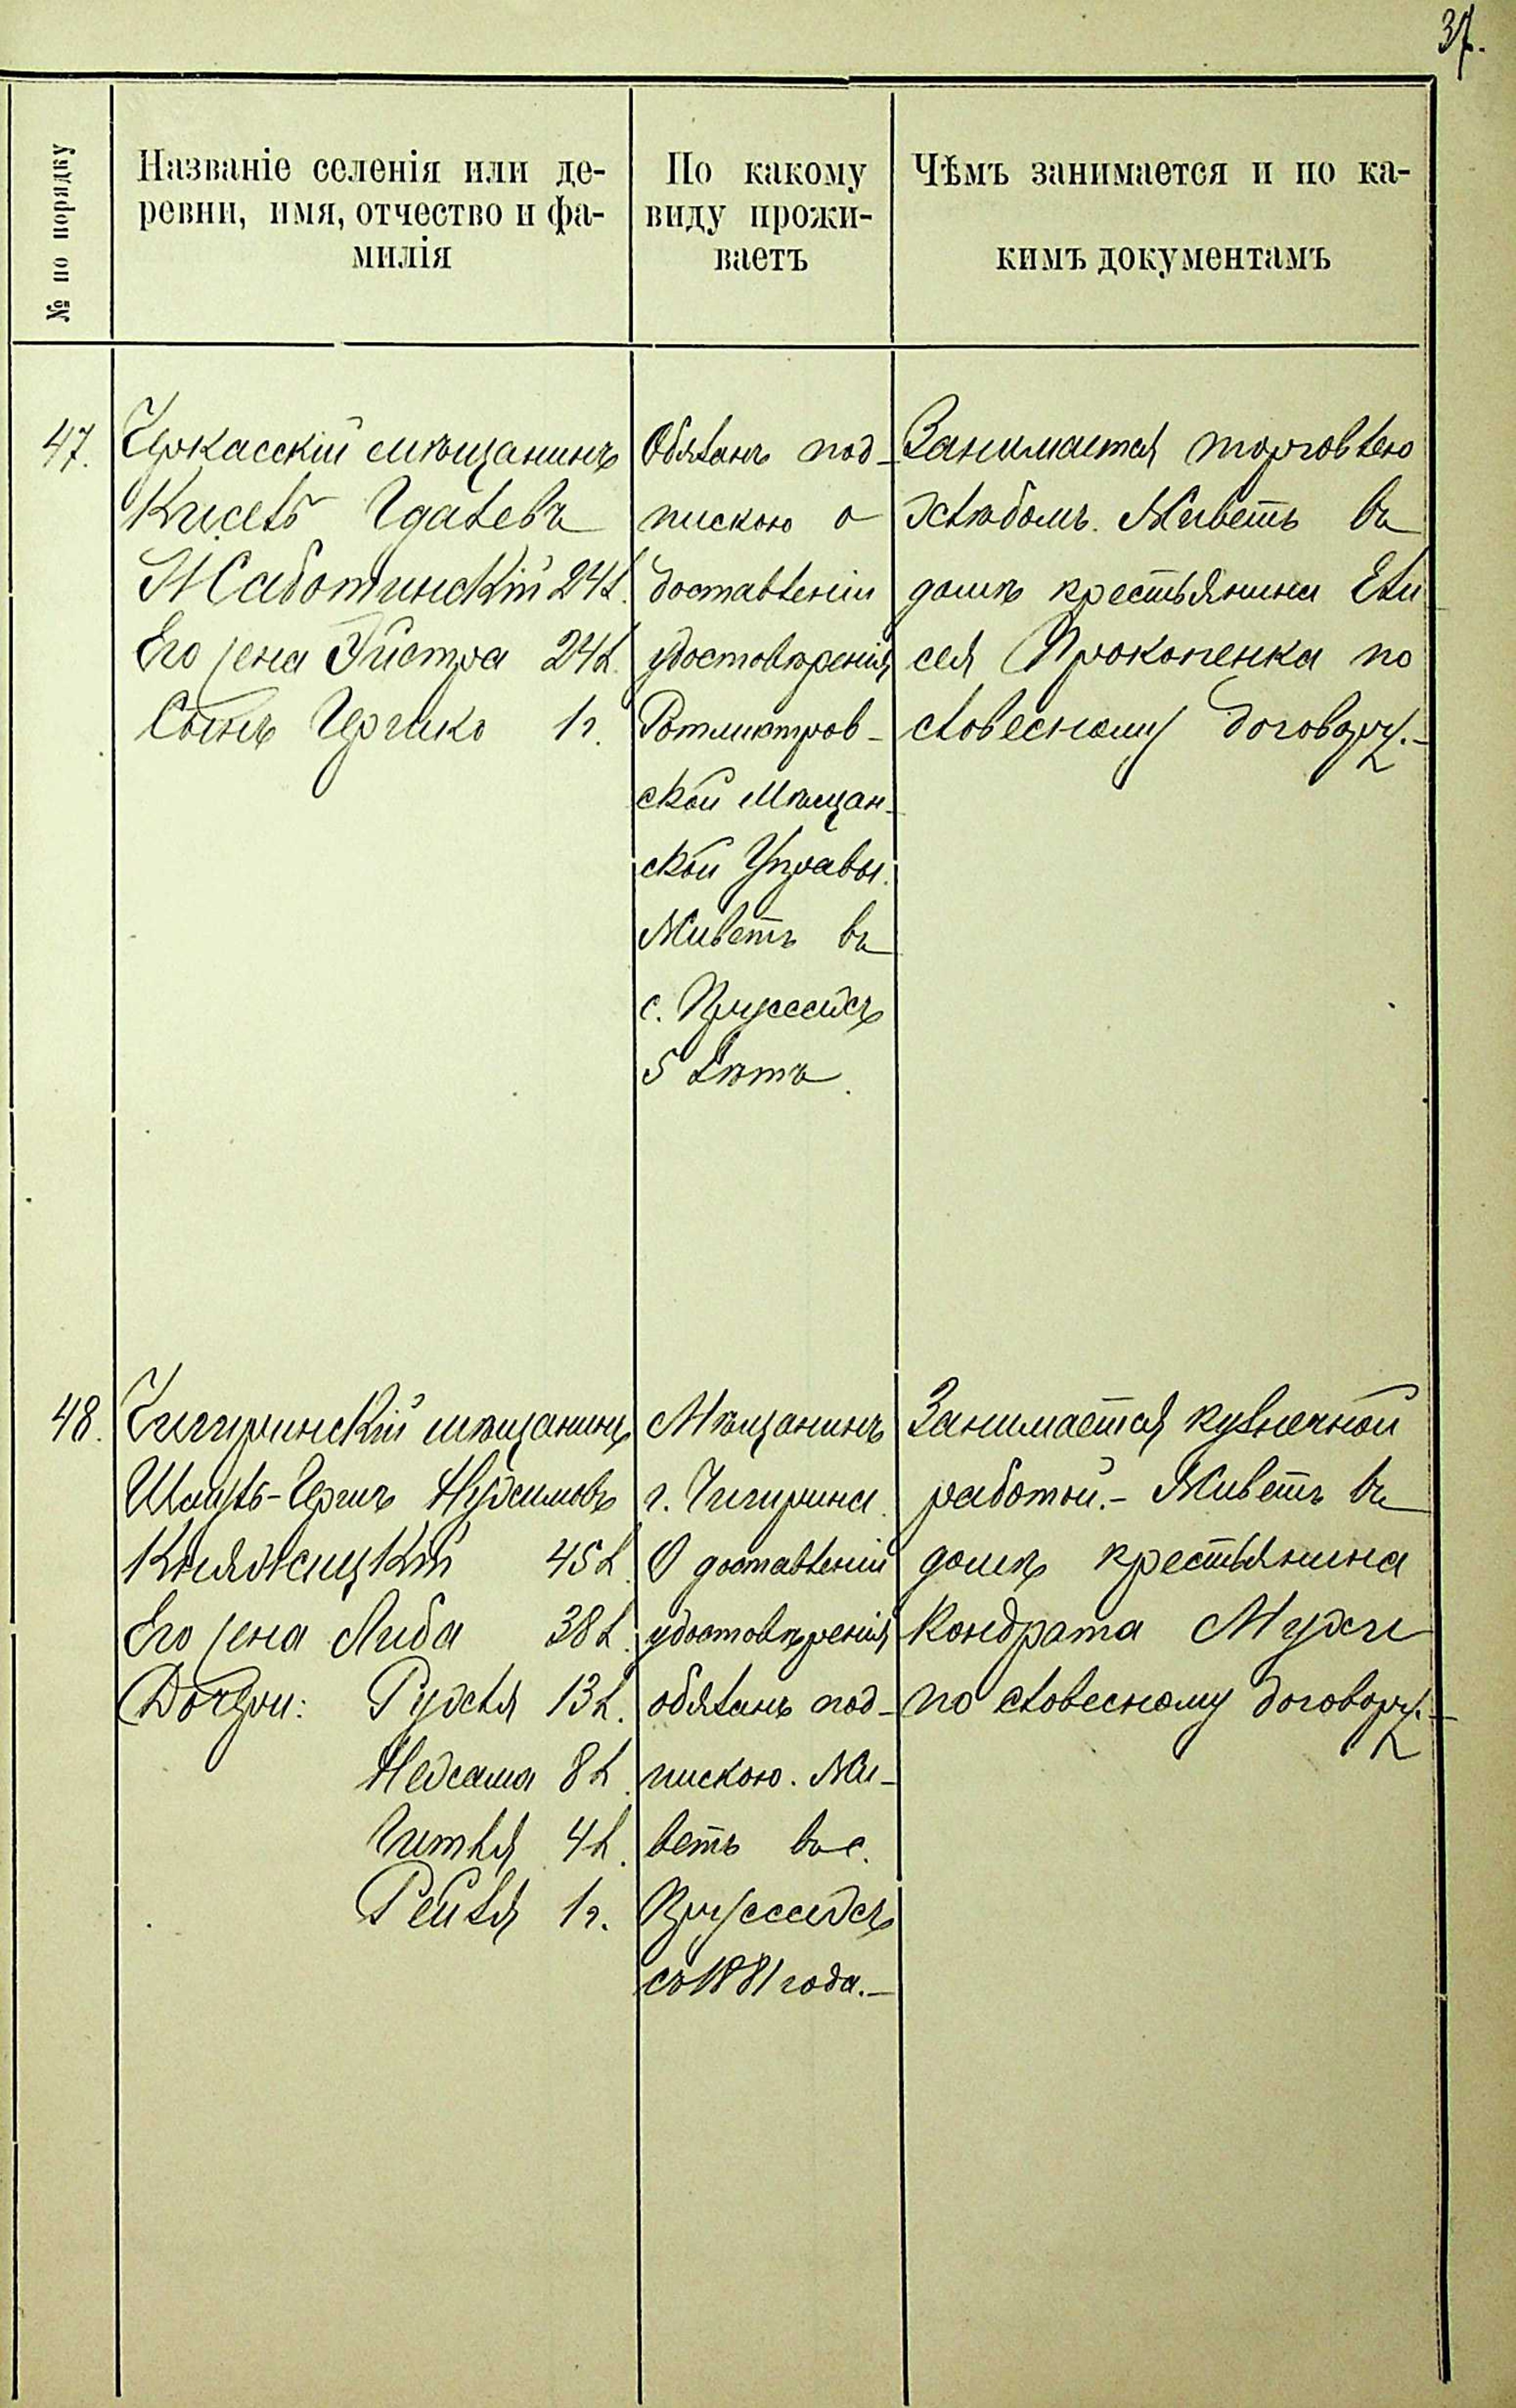 37.
№ по порядку
Названіе селенія или де-
ревни, имя, отчество и фа-
милія
По какому
виду прожи-
ваетъ
Чѣмъ занимается и по ка-
кимъ документамъ
47.
Черкасскій мѣщанинъ
Кисель Гдалевъ
Жаботинскій 24 л.
Его жена Эйстра 24 л.
Сынъ Гершко 1 г.
Обязанъ под-
пискою о
доставленіи
удостовѣренія
Ротмистров-
ской Мѣщан-
ской Управы.
Живетъ въ
с. Пруссахъ
5 лѣтъ.
Занимается торговлею
хлѣбомъ. Живетъ въ
домѣ крестьянина Ели
сея Прокопенка по
словесному договору.-
48.
Чигиринскій мѣщанинъ
Шмуль-Гершъ Нухимовъ
Княжицкій 45 л.
Его жена Либа 38 л.
Дочери: Рухля 13 л.
Нехама 8 л.
Гитля 4 л.
Рейзя 1 г.
Мѣщанинъ
г. Чигирина.
О доставленіи
удостовѣренія
обязанъ под-
пискою. Жи-
ветъ въ с.
Пруссахъ
съ 1881 года.-
Занимается кузнечной
работой.- Живетъ въ
домѣ крестьянина
Кондрата Мухи
по словесному договору.-